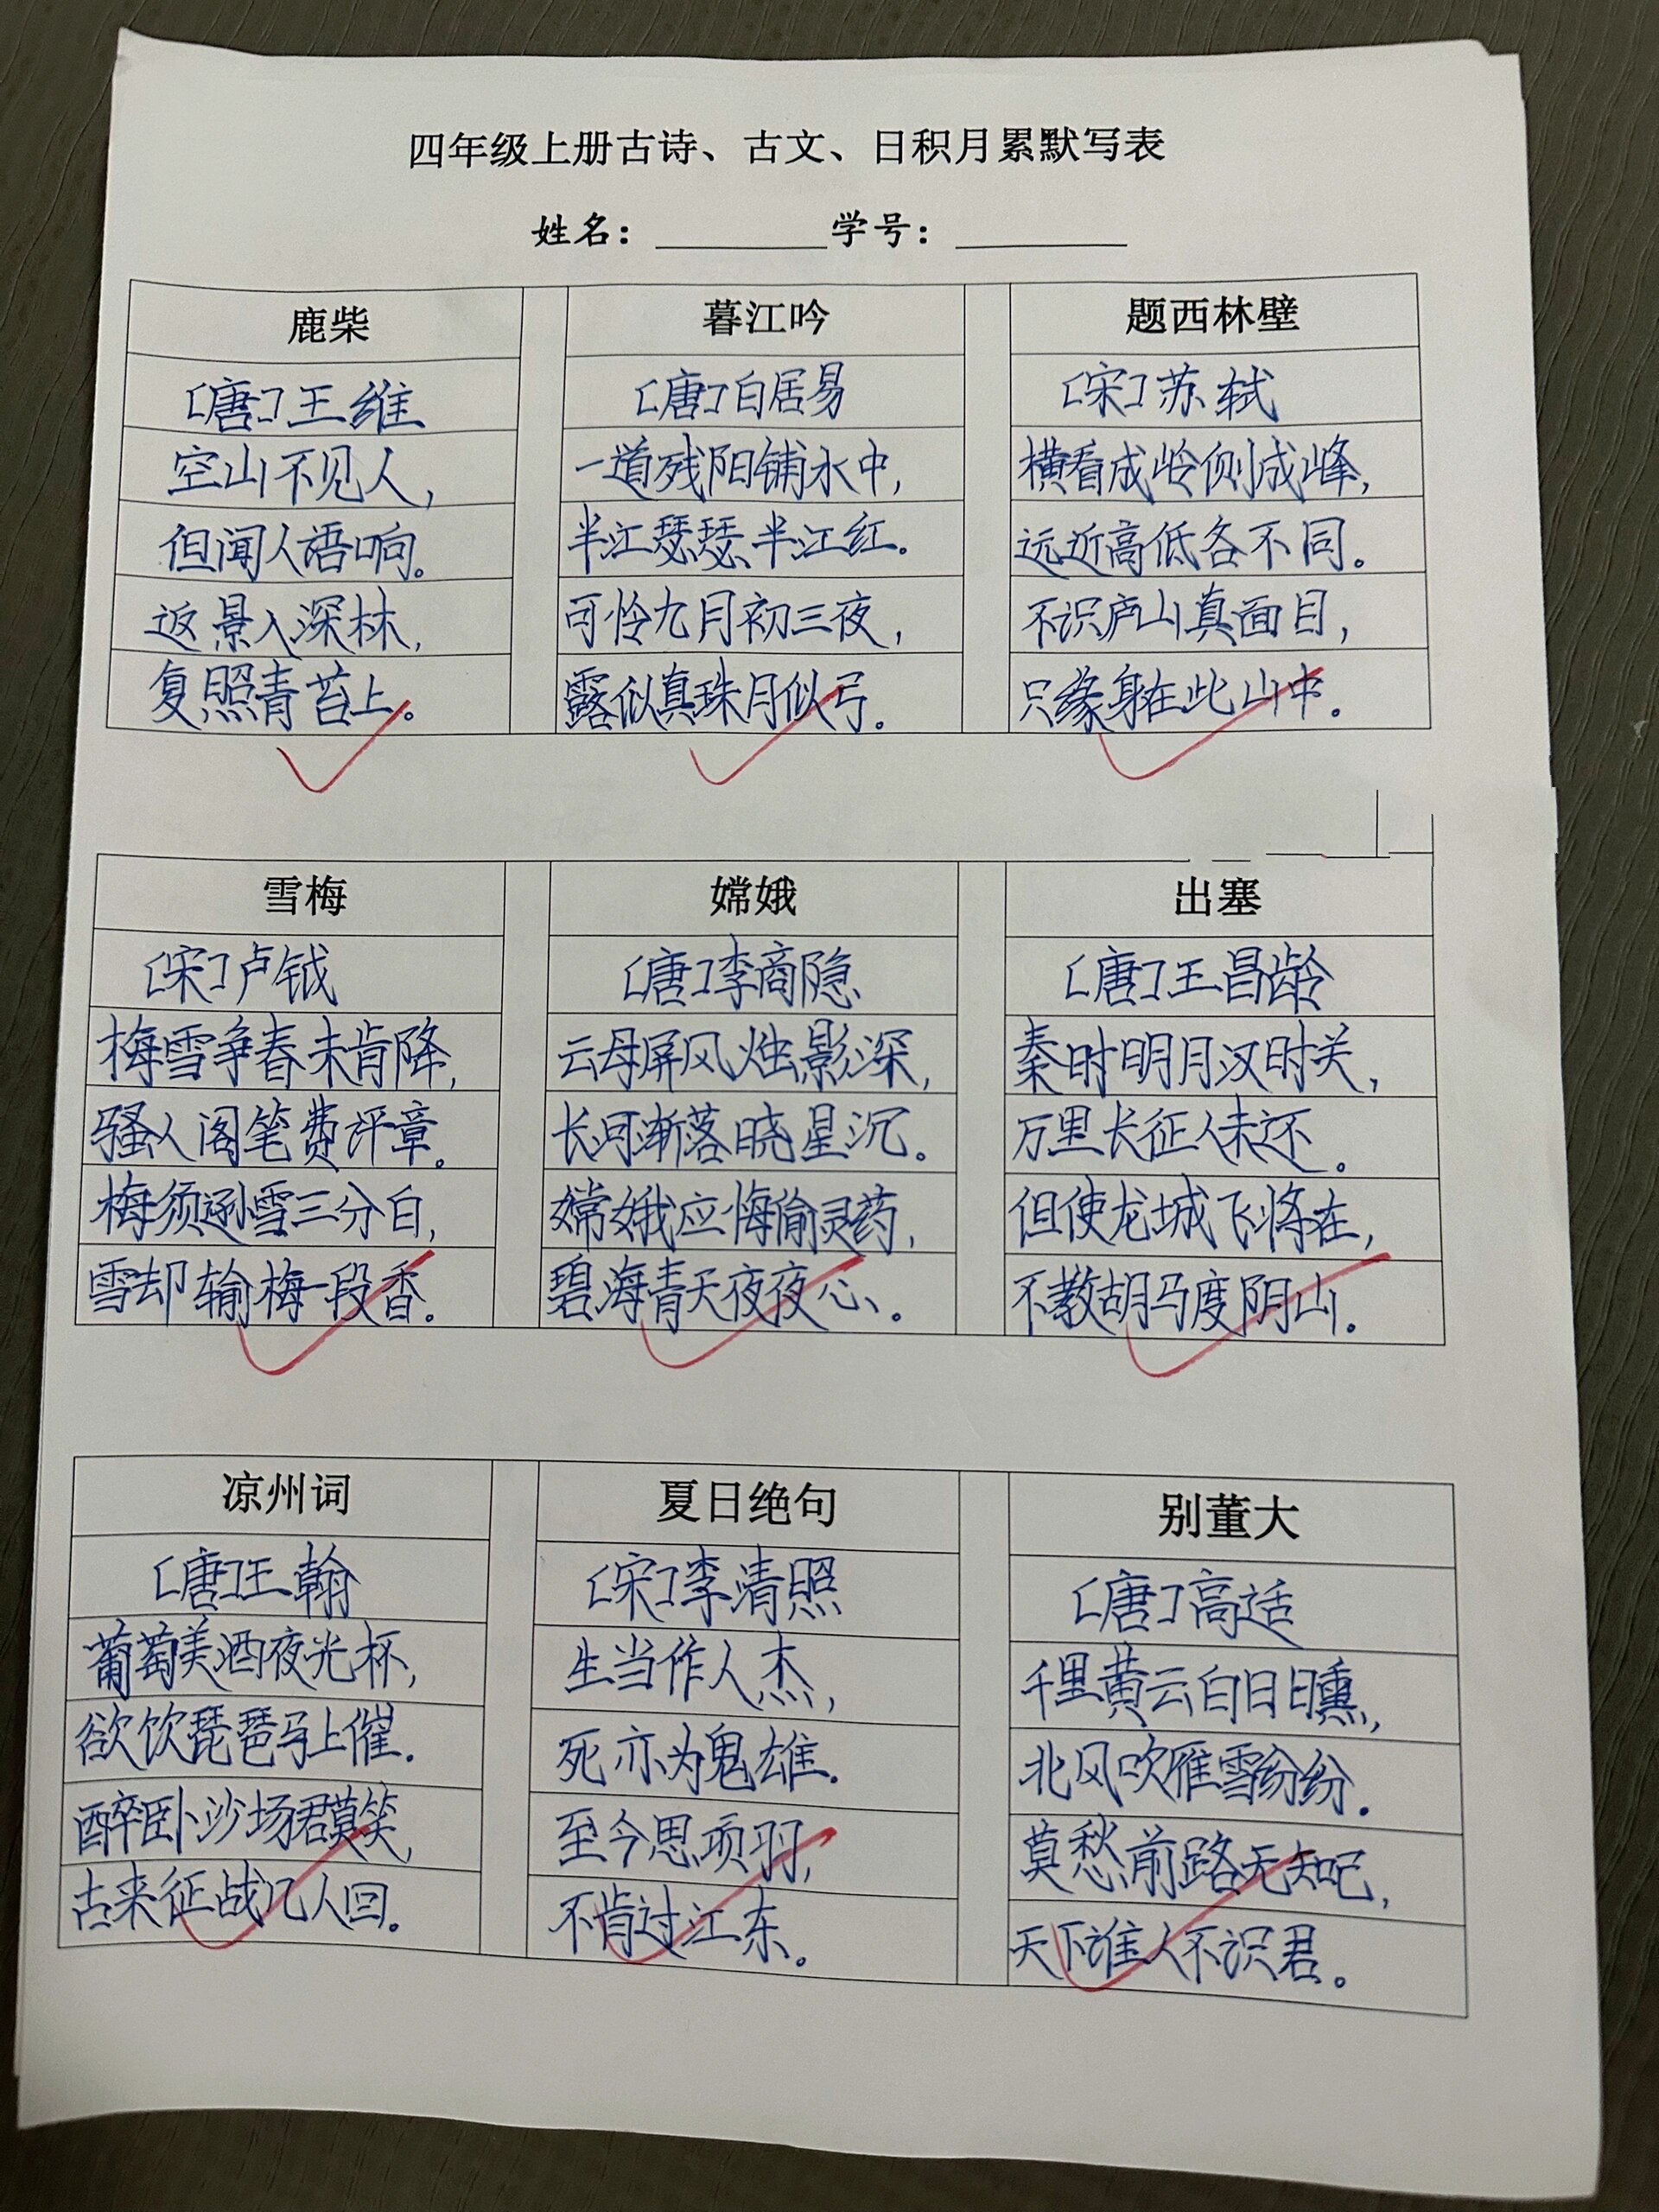 四年级上册古诗、古文、日积月累默写表
姓名：________学号：________
鹿柴
[唐]王维
空山不见人，
但闻人语响。
返景入深林，
复照青苔上。
暮江吟
[唐]白居易
一道残阳铺水中，
半江瑟瑟半江红。
可怜九月初三夜，
露似真珠月似弓。
题西林壁
[宋]苏轼
横看成岭侧成峰，
远近高低各不同。
不识庐山真面目，
只缘身在此山中。
雪梅
[宋]卢钺
梅雪争春未肯降，
骚人阁笔费评章。
梅须逊雪三分白，
雪却输梅一段香。
嫦娥
[唐]李商隐
云母屏风烛影深，
长河渐落晓星沉。
嫦娥应悔偷灵药，
碧海青天夜夜心。
出塞
[唐]王昌龄
秦时明月汉时关，
万里长征人未还。
但使龙城飞将在，
不教胡马度阴山。
凉州词
[唐]王翰
葡萄美酒夜光杯，
欲饮琵琶马上催。
醉卧沙场君莫笑，
古来征战几人回。
夏日绝句
[宋]李清照
生当作人杰，
死亦为鬼雄。
至今思项羽，
不肯过江东。
别董大
[唐]高适
千里黄云白日曛，
北风吹雁雪纷纷。
莫愁前路无知己，
天下谁人不识君。